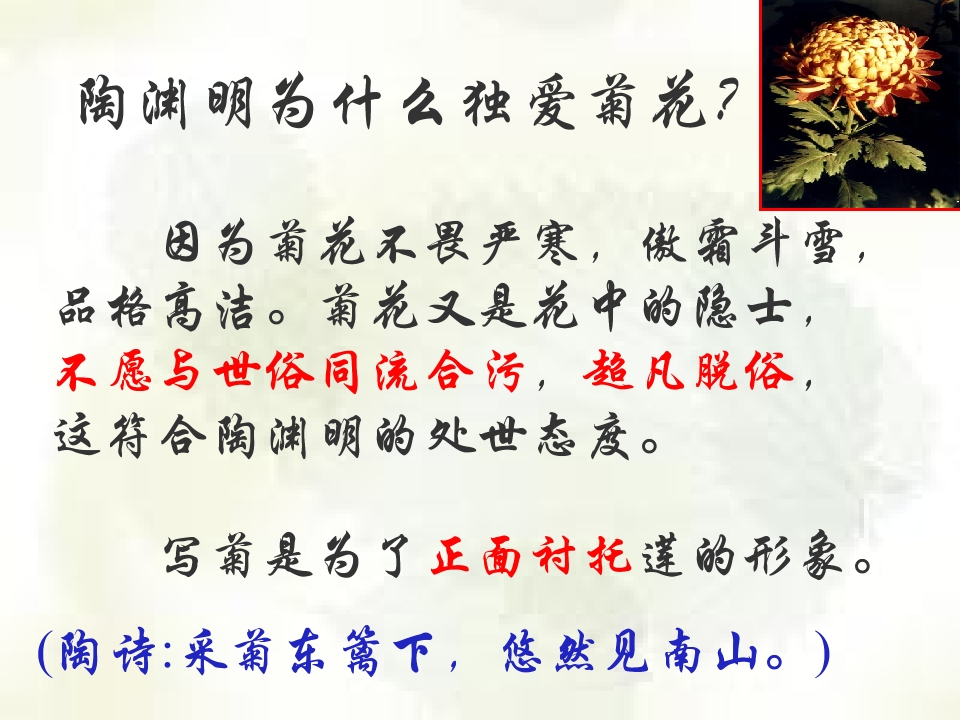 陶渊明为什么独爱菊花?
因为菊花不畏严寒，傲霜斗雪，
品格高洁。菊花又是花中的隐士，
不愿与世俗同流合污，超凡脱俗，
这符合陶渊明的处世态度。
写菊是为了正面衬托莲的形象。
(陶诗:采菊东篱下，悠然见南山。)